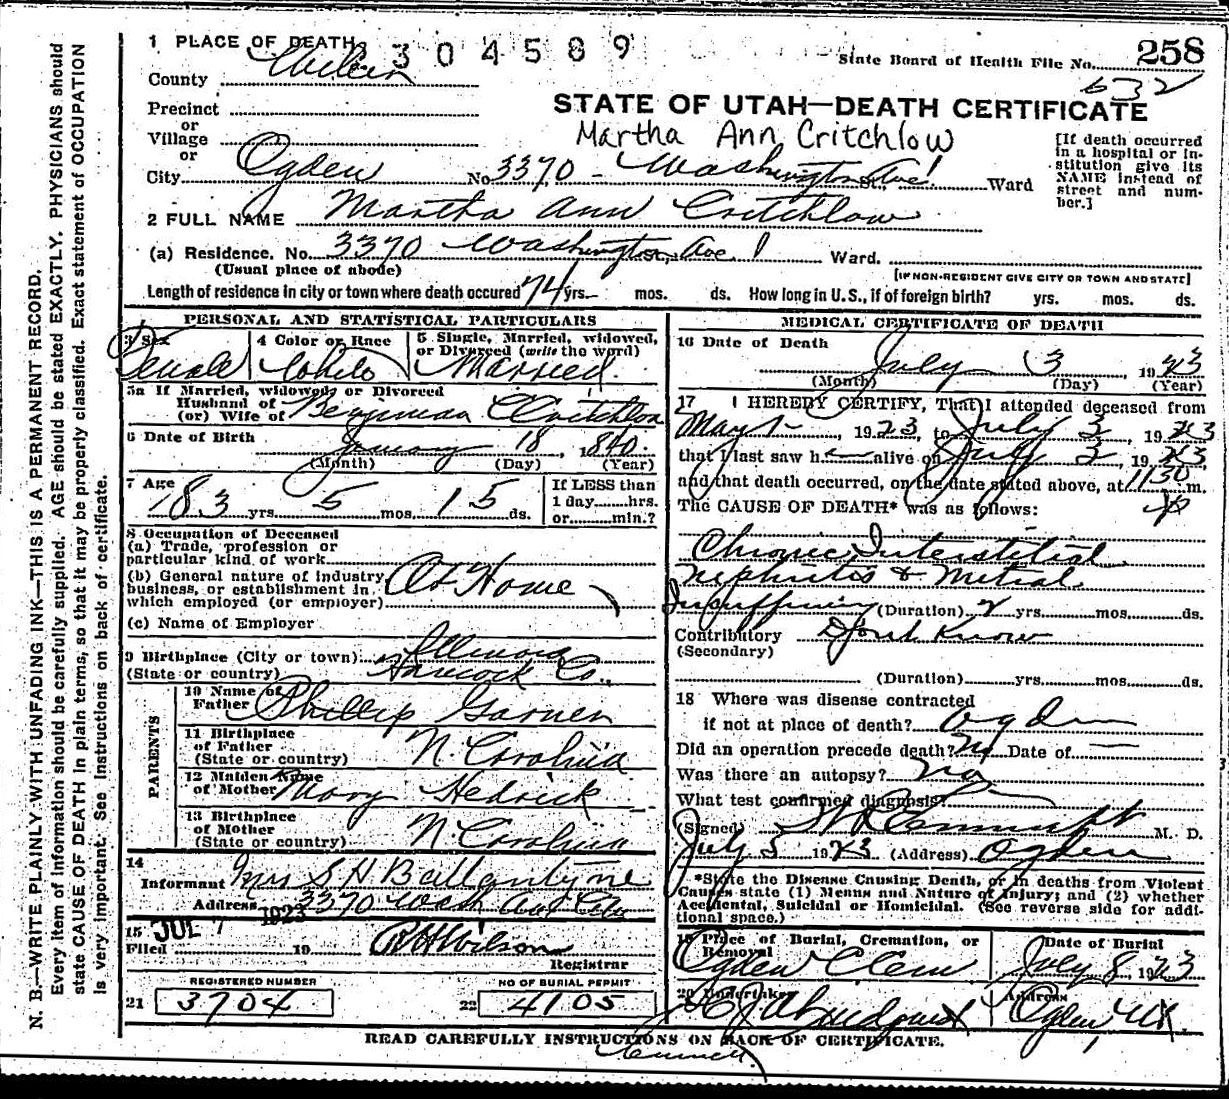 1 PLACE OF DEATH
304589
State Board of Health File No. 258
632
County Weber
STATE OF UTAH—DEATH CERTIFICATE
Precinct
or
Village
or
Martha Ann Critchlow
[If death occurred in a hospital or institution give its NAME instead of street and number.]
City Ogden No 3370 - Washington Ave St. Ward
2 FULL NAME Martha Ann Critchlow
(a) Residence. No. 3370 Washington Ave Ward.
(Usual place of abode)
[IF NON-RESIDENT GIVE CITY OR TOWN AND STATE]
Length of residence in city or town where death occured 74 yrs. mos. ds. How long in U.S., if of foreign birth? yrs. mos. ds.
PERSONAL AND STATISTICAL PARTICULARS
3 Sex Female
4 Color or Race White
5 Single, Married, widowed, or Divorced (write the word) Married.
5a If Married, widowed, or Divorced
Husband of
(or) Wife of Benjamin Critchlow
6 Date of Birth January 18, 1840
(Month) (Day) (Year)
7 Age 83 yrs. 5 mos. 15 ds.
If LESS than
1 day hrs.
or min.?
8 Occupation of Deceased
(a) Trade, profession or
particular kind of work
(b) General nature of industry
business, or establishment in
which employed (or employer) At Home
(c) Name of Employer
9 Birthplace (City or town) Illinois
(State or country) Hancock Co.
PARENTS
10 Name of
Father Phillip Garner
11 Birthplace
of Father
(State or country) N. Carolina
12 Maiden Name
of Mother Mary Hedrick
13 Birthplace
of Mother
(State or country) N. Carolina
14
Informant Mrs S H Ballantyne
Address 3370 Wash Ave City
15 JUL 7 1923
Filed 19 Wilson
Registrar
REGISTERED NUMBER
21 3704
NO OF BURIAL PERMIT
22 4105
MEDICAL CERTIFICATE OF DEATH
16 Date of Death July 3 1923
(Month) (Day) (Year)
17 I HEREBY CERTIFY, That I attended deceased from
May 1-, 1923, to July 3, 1923
that I last saw h alive on July 3, 1923,
and that death occurred, on the date stated above, at 1130 m.
The CAUSE OF DEATH* was as follows: p
Chronic Interstitial
Nephritis & Mitral
Insufficiency (Duration) 2 yrs. mos. ds.
Contributory Dont Know
(Secondary)
(Duration) yrs. mos. ds.
18 Where was disease contracted
if not at place of death? Ogden
Did an operation precede death? No Date of —
Was there an autopsy? No
What test confirmed diagnosis?
(Signed) M. D.
July 5 1923 (Address) Ogden
*State the Disease Causing Death, or in deaths from Violent
Causes state (1) Means and Nature of Injury; and (2) whether
Accidental, Suicidal or Homicidal. (See reverse side for addi-
tional space.)
19 Place of Burial, Cremation, or
Removal
Ogden Cem
Date of Burial
July 8, 1923
20 Undertaker
Address
Ogden, Ut.
READ CAREFULLY INSTRUCTIONS ON BACK OF CERTIFICATE.
N. B.—WRITE PLAINLY WITH UNFADING INK—THIS IS A PERMANENT RECORD.
Every item of information should be carefully supplied. AGE should be stated EXACTLY. PHYSICIANS should
state CAUSE OF DEATH in plain terms, so that it may be properly classified. Exact statement of OCCUPATION
is very important. See instructions on back of certificate.